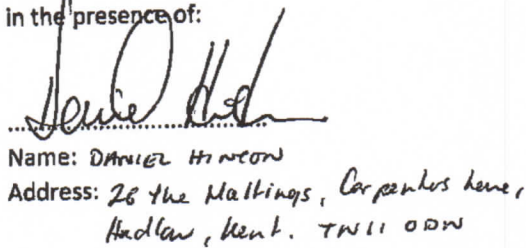 in the presence of:
Name: DANIEL HINTON
Address: 26 The Maltings, Carpenters Lane,
Hadlow, Kent. TN11 0DW